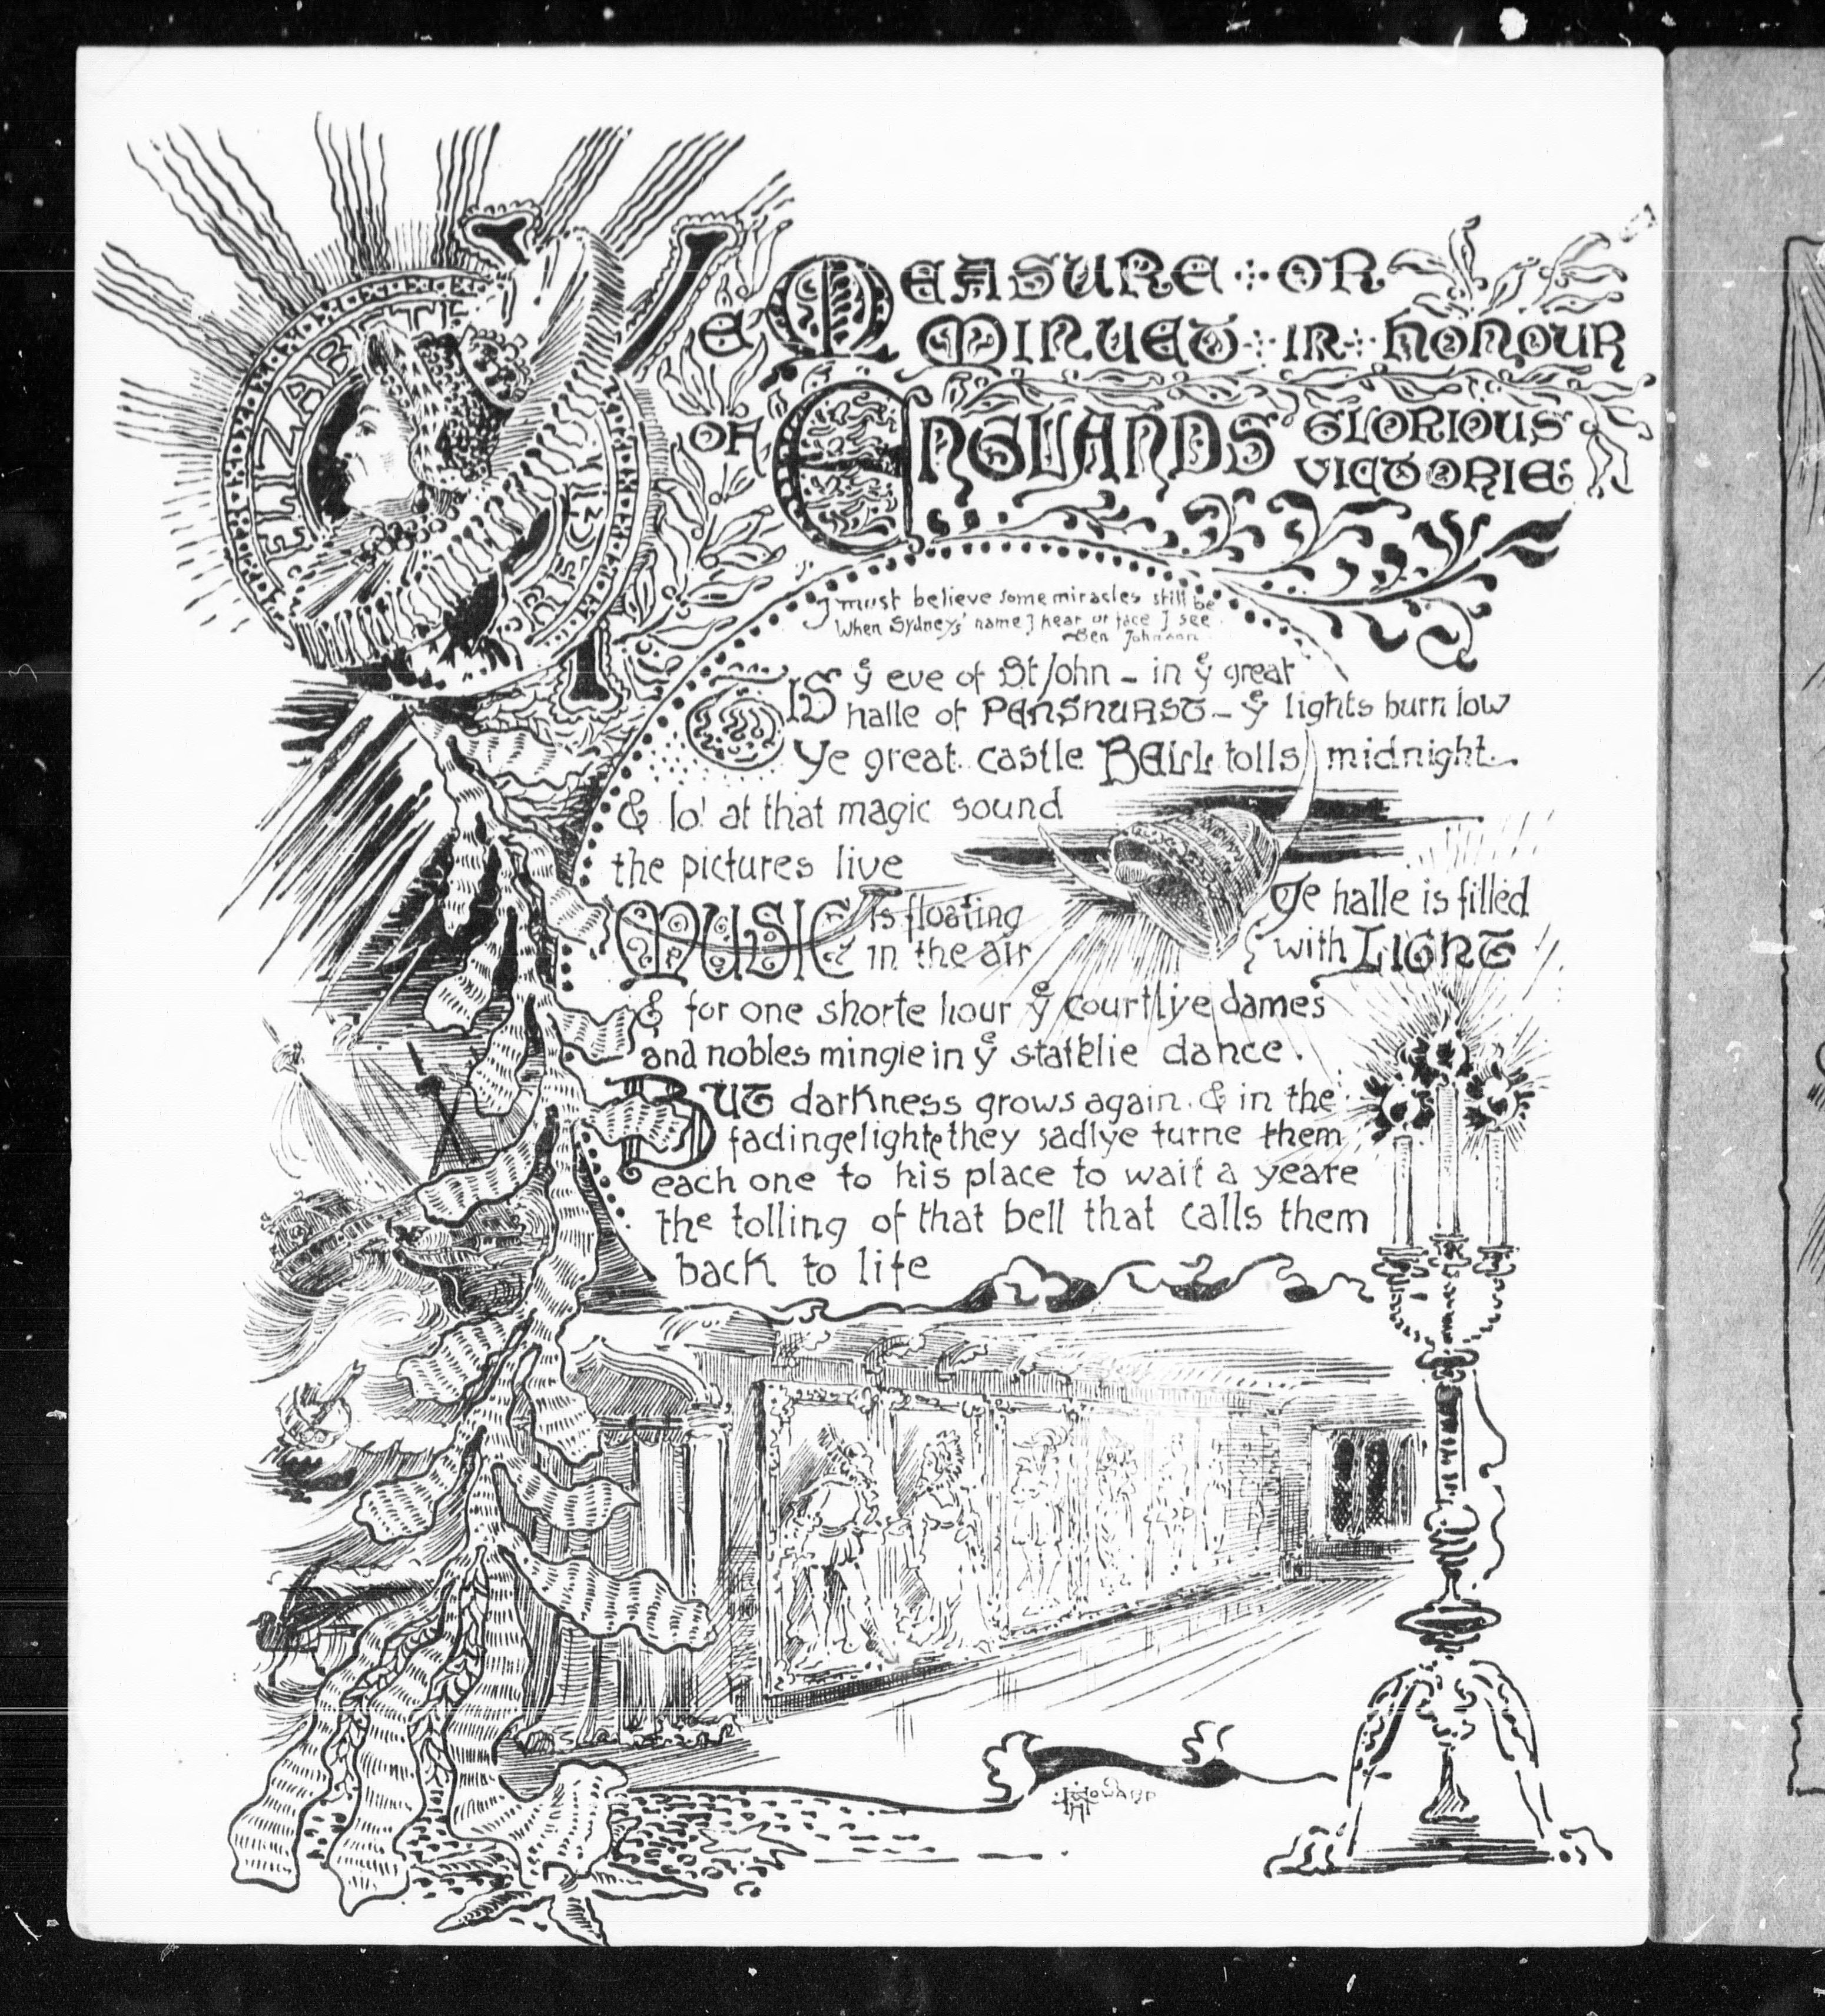 ELIZABETH
Ye MEASURE OR
MINUET IN HONOUR
OF ENGLANDS GLORIOUS
VICTORIE
I must believe some miracles still be
When Sydneys' name I hear or face I see
Ben Johnson
TIS yᵉ eve of St John – in yᵉ great
halle of PENSHURST – yᵉ lights burn low
Ye great castle BELL tolls midnight.
& lo! at that magic sound
the pictures live
MUSIC is floating
in the air
Ye halle is filled
with LIGHT
& for one shorte hour yᵉ courtlye dames
and nobles mingle in yᵉ statelie dance.
BUT darkness grows again. & in the
fadinge lighte they sadlye turne them
each one to his place to wait a yeare
the tolling of that bell that calls them
back to life
HOWARD